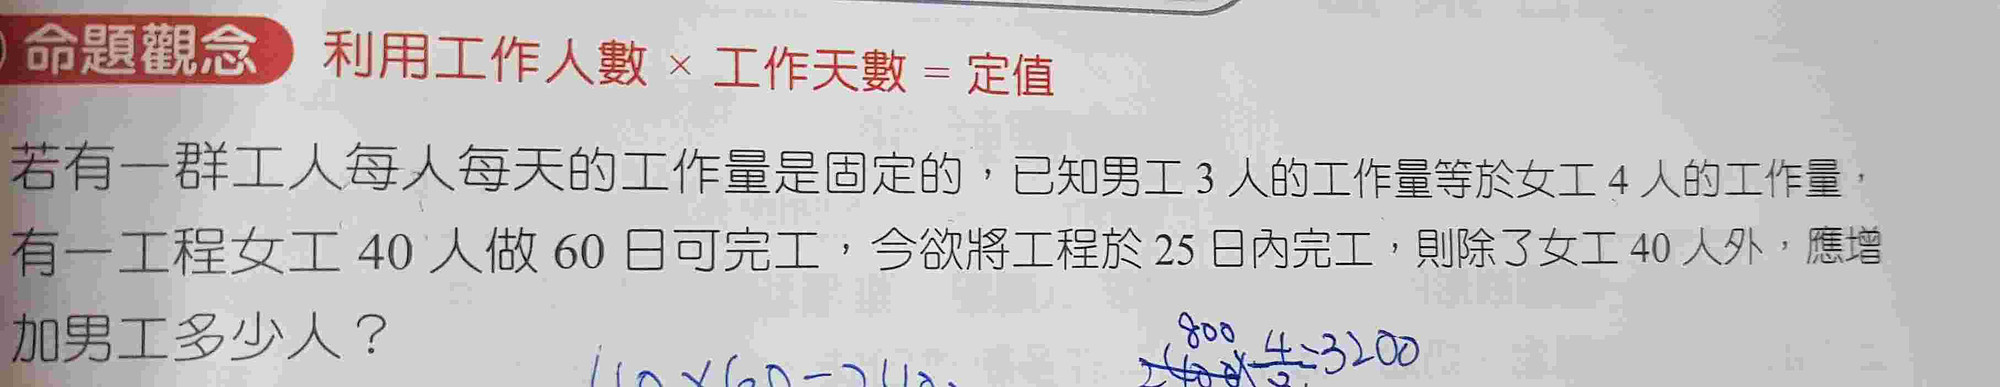 命題觀念 利用工作人數 × 工作天數 = 定值
若有一群工人每人每天的工作量是固定的，已知男工 3 人的工作量等於女工 4 人的工作量，
有一工程女工 40 人做 60 日可完工，今欲將工程於 25 日內完工，則除了女工 40 人外，應增
加男工多少人？
800
=3200